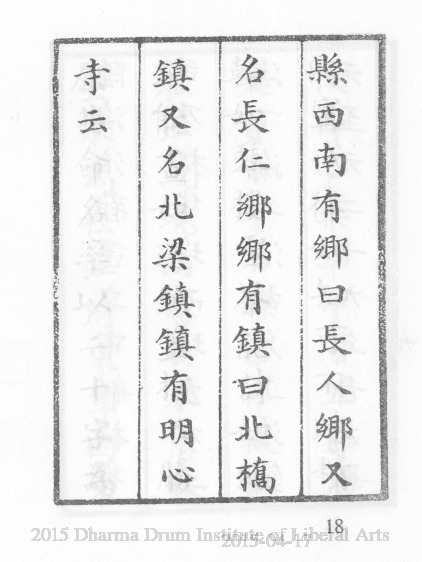 縣西南有鄉曰長人鄉又
名長仁鄉鄉有鎮曰北橋
鎮又名北梁鎮鎮有明心
寺云
18
2015 Dharma Drum Institute of Liberal Arts
2015-04-17